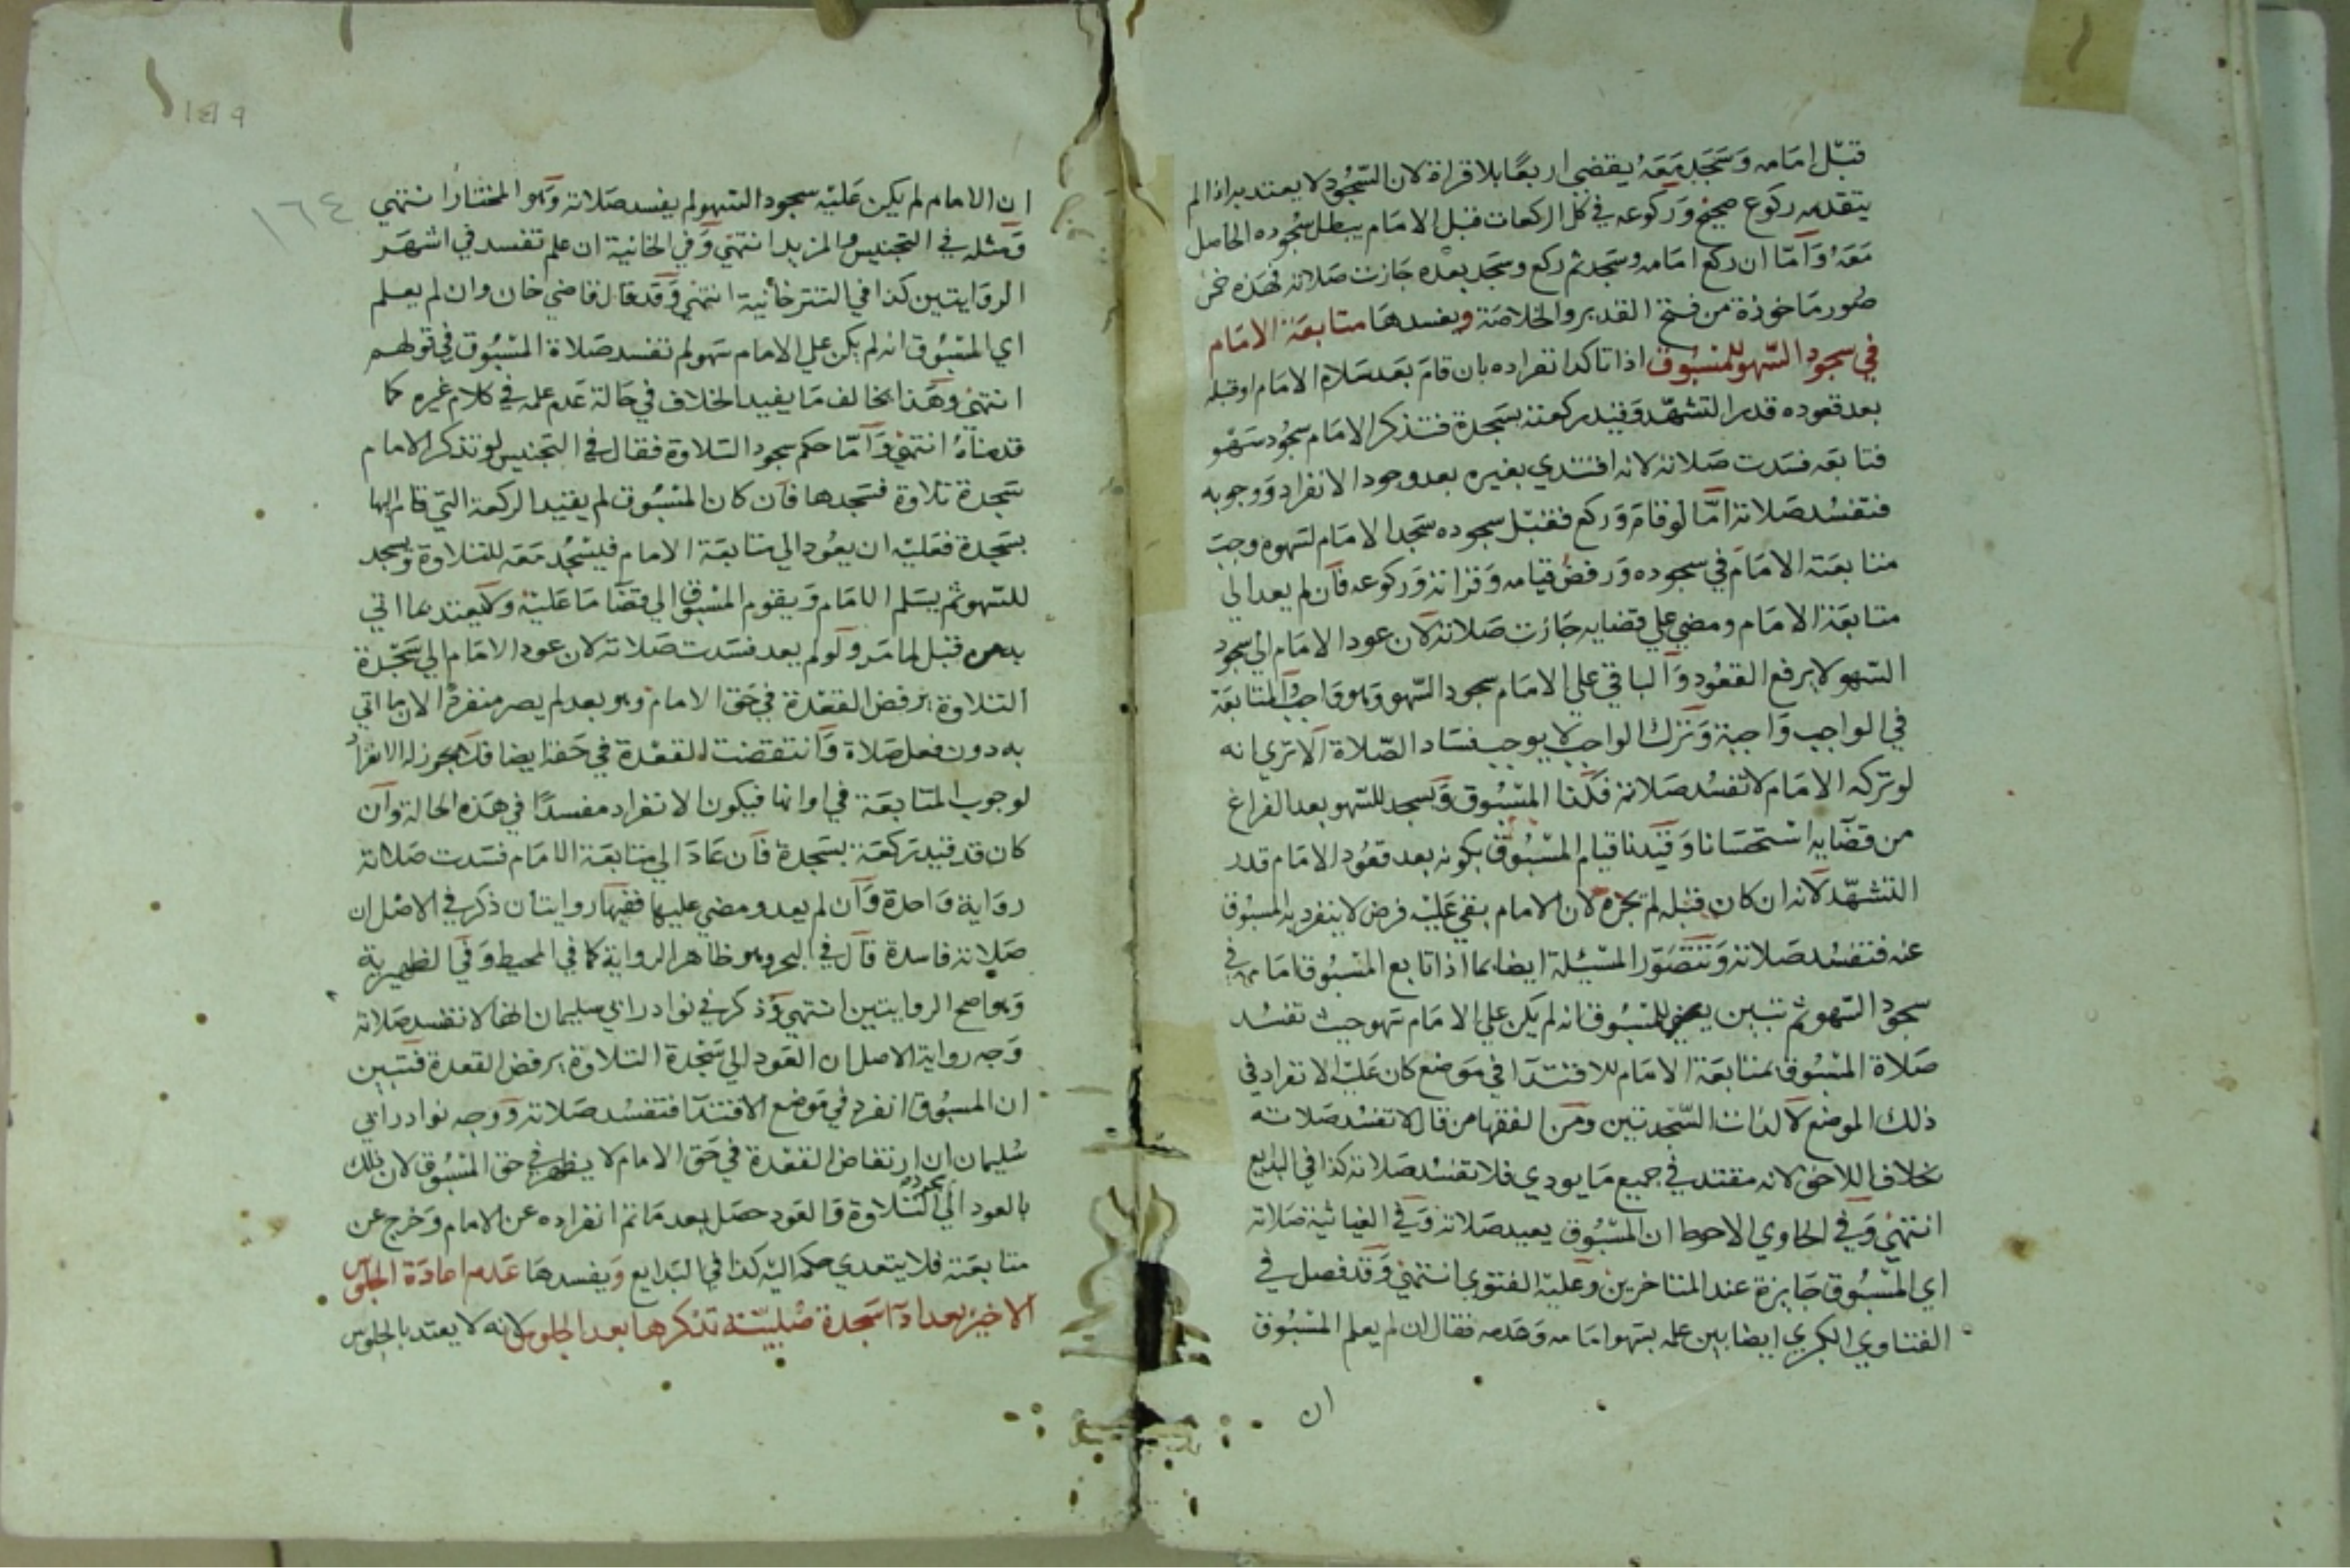 قبل امامه وسجد معه يقضي اربعًا بلا قراة لان السجود لا يعتد به اذا لم
يتقدمه ركوع صحيح وركوعه في كل الركعات قبل الامام يبطل سجوده الحاصل
معه واما ان ركع امامه وسجد ثم ركع وسجد بعده جازت صلاته فهذه خمس
صور ماخوذة من فتح القدير والخلاصة ويفسدها متابعة الامام
في سجود السهو للمسبوق اذا تاكد انفراده بان قام بعد سلام الامام او قبله
بعد قعوده قدر التشهد وقيد ركعته بسجدة فتذكر الامام سجود سهو
فتابعه فسدت صلاته لانه اقتدي بغيره بعد وجود الانفراد ووجوبه
فتفسد صلاته اما لو قام وركع فقبل سجوده سجد الامام لسهوه وجب
متابعة الامام في سجوده ورفض قيامه وقراته وركوعه فان لم يعد الي
متابعة الامام ومضي علي قضايه جازت صلاته لان عود الامام الي سجود
السهو لا يرفع القعود والباقي علي الامام سجود السهو وهو واجب والمتابعة
في الواجب واجبة وترك الواجب لا يوجب فساد الصلاة الا تري انه
لو تركه الامام لا تفسد صلاته فكذا المسبوق ويسجد للسهو بعد الفراغ
من قضايه استحسانا وقيدنا قيام المسبوق بكونه بعد قعود الامام قدر
التشهد لانه ان كان قبله لم تجزه لان الامام بقي عليه فرض لا ينفرد به المسبوق
عنه فتفسد صلاته وتتصور المسئلة ايضا بما اذا تابع المسبوق امامه في
سجود السهو ثم تبين للمسبوق انه لم يكن علي الامام سهو حيث تفسد
صلاة المسبوق بمتابعة الامام للاقتدا في موضع كان عليه الانفراد في
ذلك الموضع لا لذات السجدتين ومن الفقها من قال لا تفسد صلاته
بخلاف اللاحق لانه مقتد في جميع ما يودي فلا تفسد صلاته كذا في البدايع
انتهي وفي الحاوي الاحوط ان المسبوق يعيد صلاته وفي الغياثية صلاته
اي المسبوق جايزة عند المتاخرين وعليه الفتوي انتهي وقد فصل في
الفتاوي الكبري ايضا بين علمه بسهو امامه وعدمه فقال ان لم يعلم المسبوق
ان
١٤٩
١٦٤
ان الامام لم يكن عليه سجود السهو لم يفسد صلاته وهو المختار انتهي
ومثله في التجنيس والمزيد انتهي وفي الخانية ان علم تفسد في اشهر
الروايتين كذا في التتر خانية انتهي وقد قال قاضي خان وان لم يعلم
اي المسبوق انه لم يكن علي الامام سهو لم تفسد صلاة المسبوق في قولهم
انتهي وهذا يخالف ما يفيد الخلاف في حالة عدم علمه في كلام غيره كما
قدمناه انتهي واما حكم سجود التلاوة فقال في التجنيس لو تذكر الامام
سجدة تلاوة فسجدها فان كان المسبوق لم يقيد الركعة التي قام اليها
بسجدة فعليه ان يعود الي متابعة الامام فيسجد معه للتلاوة ويسجد
للسهو ثم يسلم الامام ويقوم المسبوق الي قضا ما عليه ولا يعتد بما اتي
به من قبل لما مر ولو لم يعد فسدت صلاته لان عود الامام الي سجدة
التلاوة يرفض القعدة في حق الامام وهو بعد لم يصر منفردا لان ما اتي
به دون فعل صلاة وانتقضت القعدة في حقه ايضا فلا يجوز له الانفراد
لوجوب المتابعة في اوانها فيكون الانفراد مفسدا في هذه الحالة وان
كان قد قيد ركعته بسجدة فان عاد الي متابعة الامام فسدت صلاته
رواية واحدة وان لم يعد ومضي عليها ففيها روايتان ذكر في الاصل ان
صلاته فاسدة قال في البحر وهو ظاهر الرواية كما في المحيط وفي الظهيرية
وهو اصح الروايتين انتهي وذكر في نوادر ابي سليمان انها لا تفسد صلاته
وجه رواية الاصل ان العود الي سجدة التلاوة يرفض القعدة فتبين
ان المسبوق انفرد في موضع الاقتدا فتفسد صلاته ووجه نوادر ابي
سليمان ان ارتفاض القعدة في حق الامام لا يظهر في حق المسبوق لان ذلك
بالعود الي التلاوة والعود حصل بعد ما تم انفراده عن الامام وخرج عن
متابعته فلا يتعدي حكمه اليه كذا في البدايع ويفسدها عدم اعادة الجلوس
الاخير بعد ادا سجدة صلبية تذكرها بعد الجلوس لانه لا يعتد بالجلوس